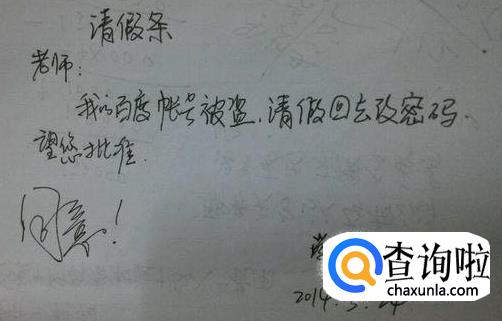 请假条
老师:
我的百度帐号被盗,请假回去改密码.
望您批准.
同意!
查询啦
chaxunla.com